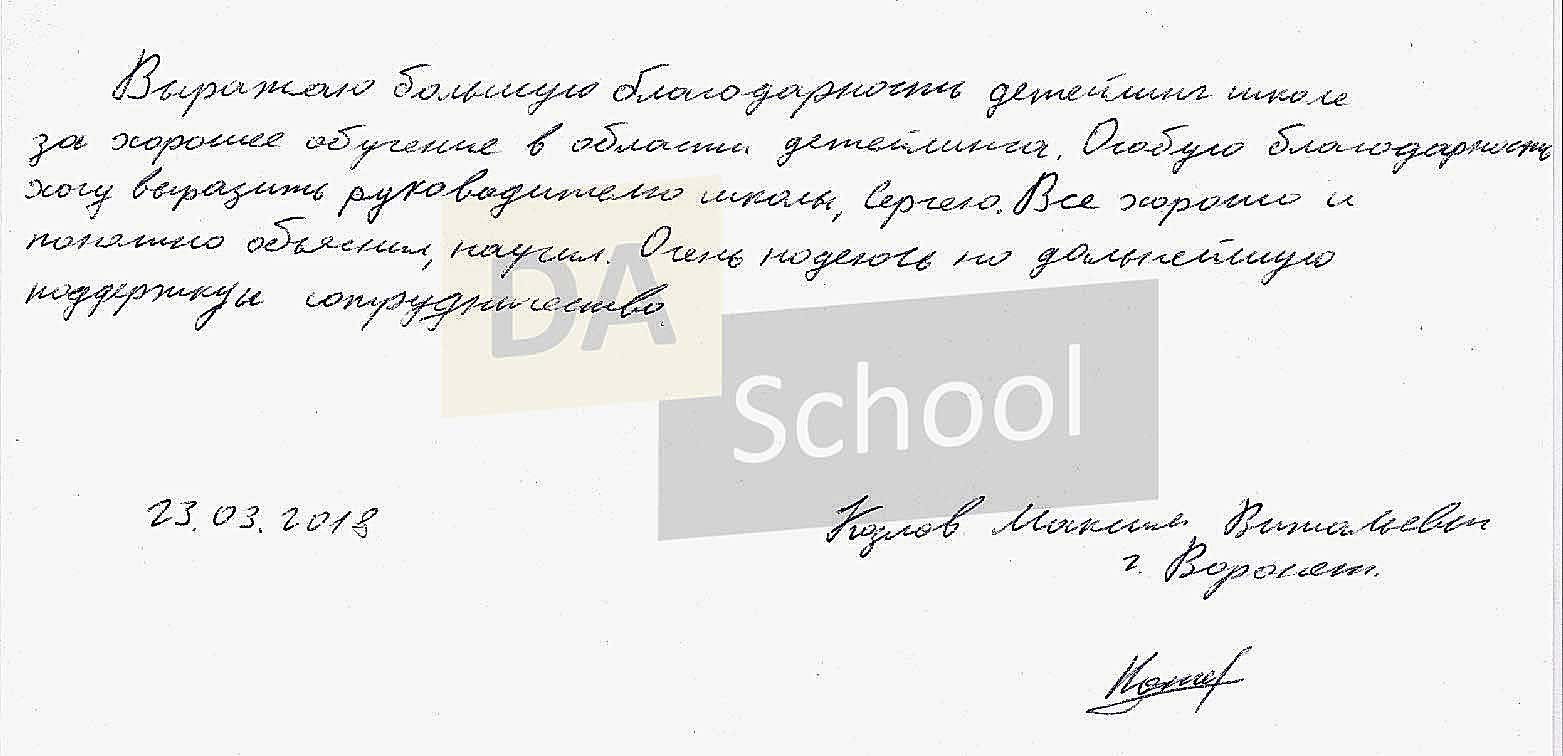 Выражаю большую благодарность детейлинг школе
за хорошее обучение в области детейлинга. Особую благодарность
хочу выразить руководителю школы, Сергею. Все хорошо и
понятно объяснил, научил. Очень надеюсь на дальнейшую
поддержку и сотрудничество.
DA
School
23.03.2018
Козлов Максим Витальевич
г. Воронеж.